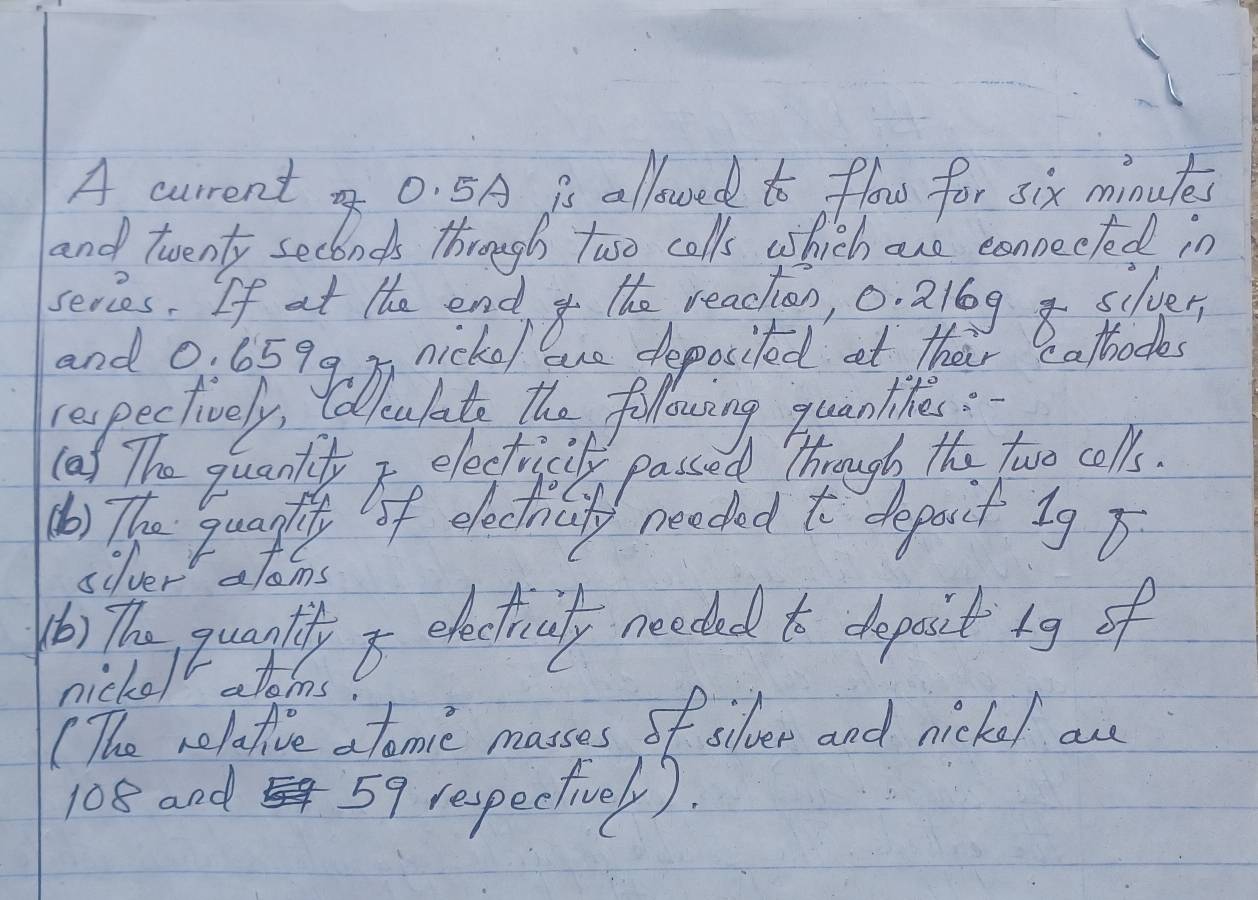 A current of 0.5A is allowed to flow for six minutes
and twenty seconds through two cells which are connected in
series. If at the end of the reaction, 0.216g of silver,
and 0.659g of nickel are deposited at their cathodes
respectively, Calculate the following quantities:-
(a) The quantity of electricity passed through the two cells.
(b) The quantity of electricity needed to deposit 1g of
silver atoms
(b) The quantity of electricity needed to deposit 1g of
nickel atoms.
(The relative atomic masses of silver and nickel are
108 and 59 respectively).